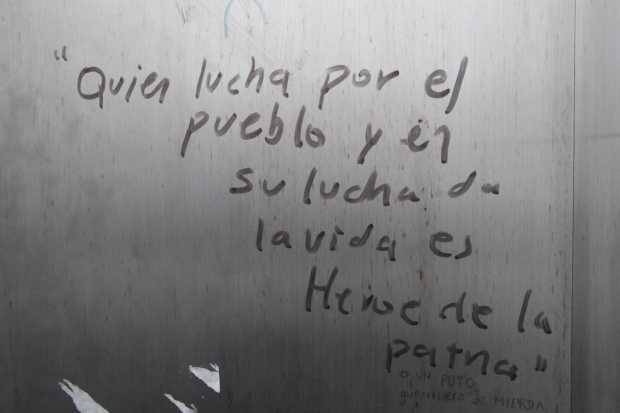 "Quien lucha por el
pueblo y en
su lucha da
la vida es
Heroe de la
patria"
o, UN PUTO
guerrillero de MIERDA